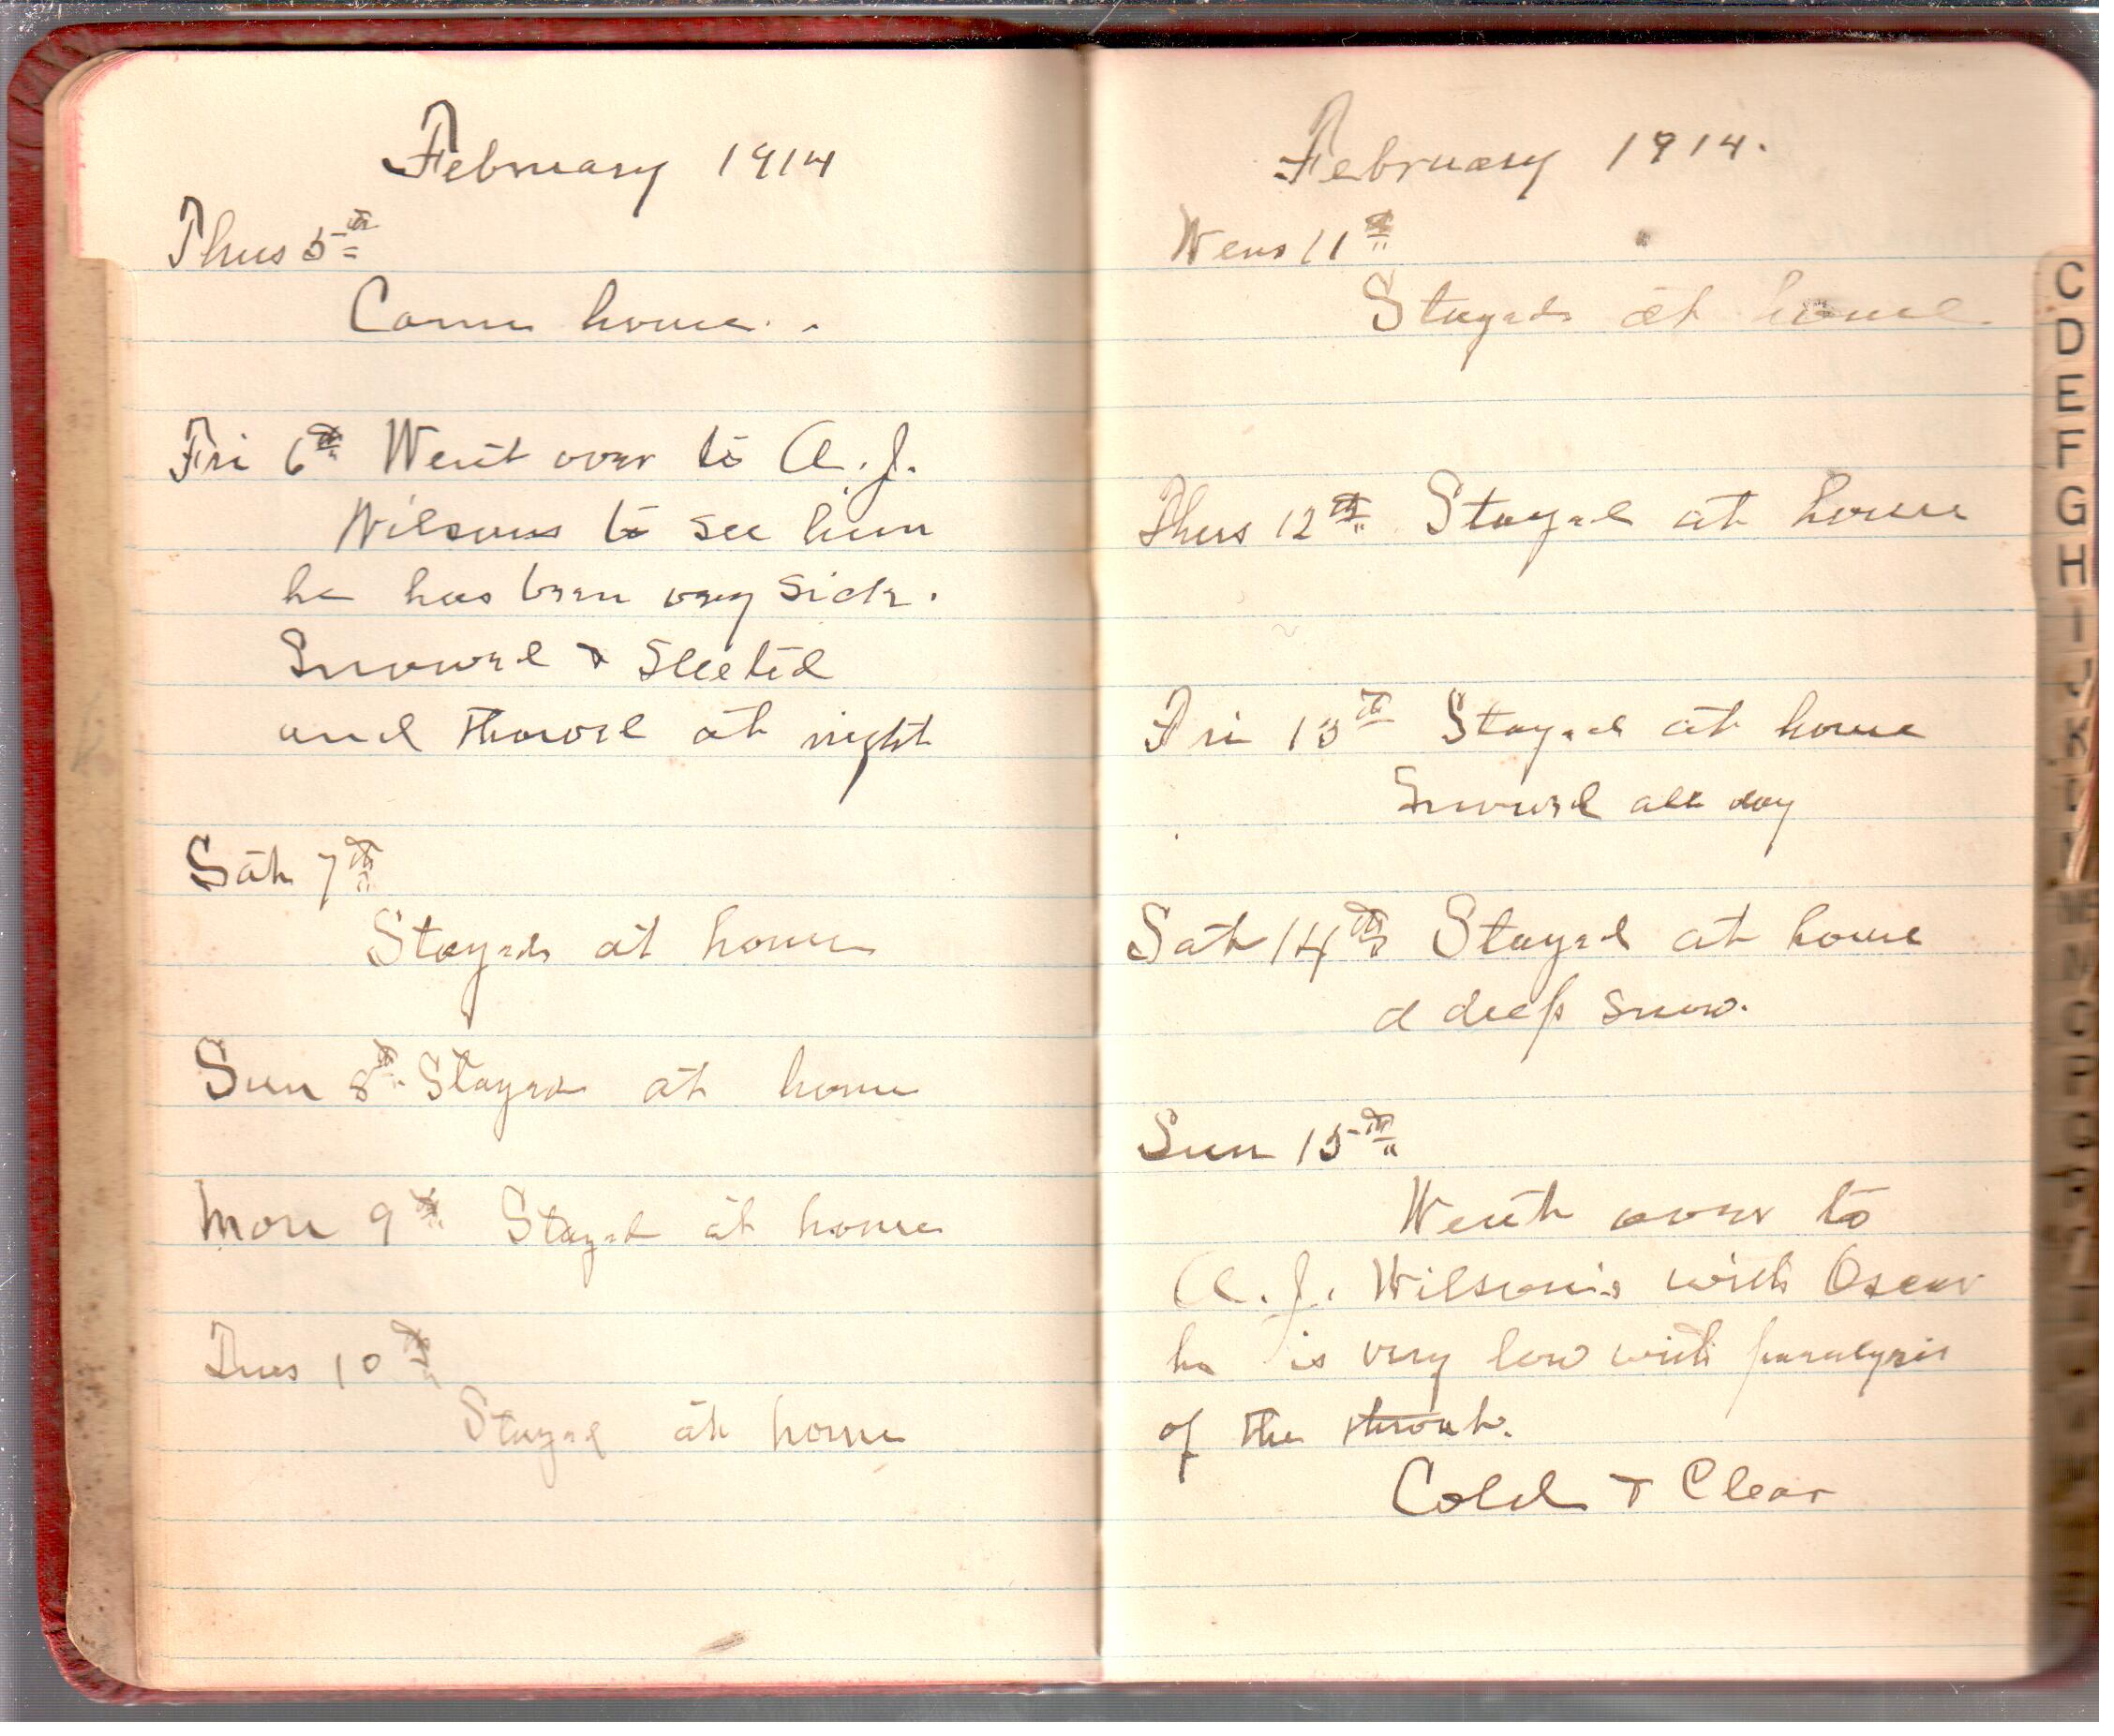 February 1914
Thus 5th
Came home.
Fri 6th Went over to A.J.
Wilsons to see him
he has been very sick.
Snowed & Sleeted
and thawed at night
Sat 7th
Stayed at home
Sun 8th Stayed at home
Mon 9th Stayed at home
Tues 10th
Stayed at home
February 1914.
Wens 11th
Stayed at home.
Thus 12th Stayed at home
Fri 13th Stayed at home
Snowed all day
Sat 14th Stayed at home
a deep snow.
Sun 15th
Went over to
A.J. Wilson's with Oscar
he is very low with paralysis
of the throat.
Cold & Clear
C
D
E
F
G
H
I
J
K
L
M
N
O
P